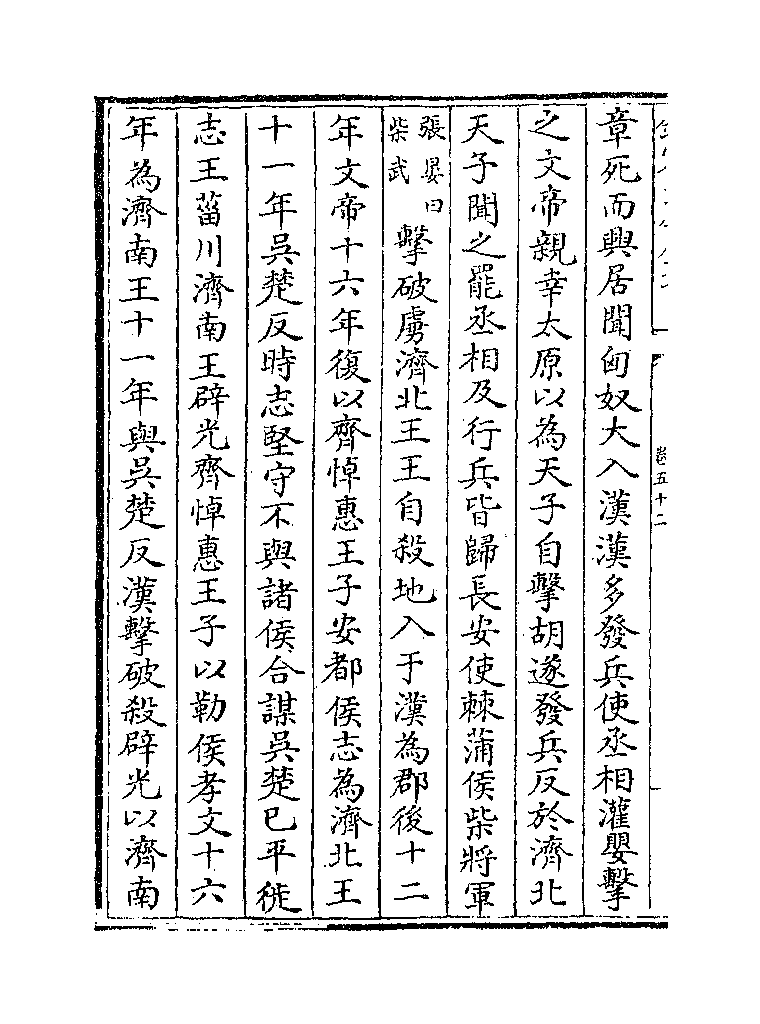 章死而興居聞匈奴大入漢漢多發兵使丞相灌嬰擊
之文帝親幸太原以為天子自擊胡遂發兵反於濟北
天子聞之罷丞相及行兵皆歸長安使棘蒲侯柴將軍
張晏曰
柴武
擊破虜濟北王王自殺地入于漢為郡後十二
年文帝十六年復以齊悼惠王子安都侯志為濟北王
十一年吳楚反時志堅守不與諸侯合謀吳楚已平徙
志王菑川濟南王辟光齊悼惠王子以勒侯孝文十六
年為濟南王十一年與吳楚反漢擊破殺辟光以濟南
卷五十二